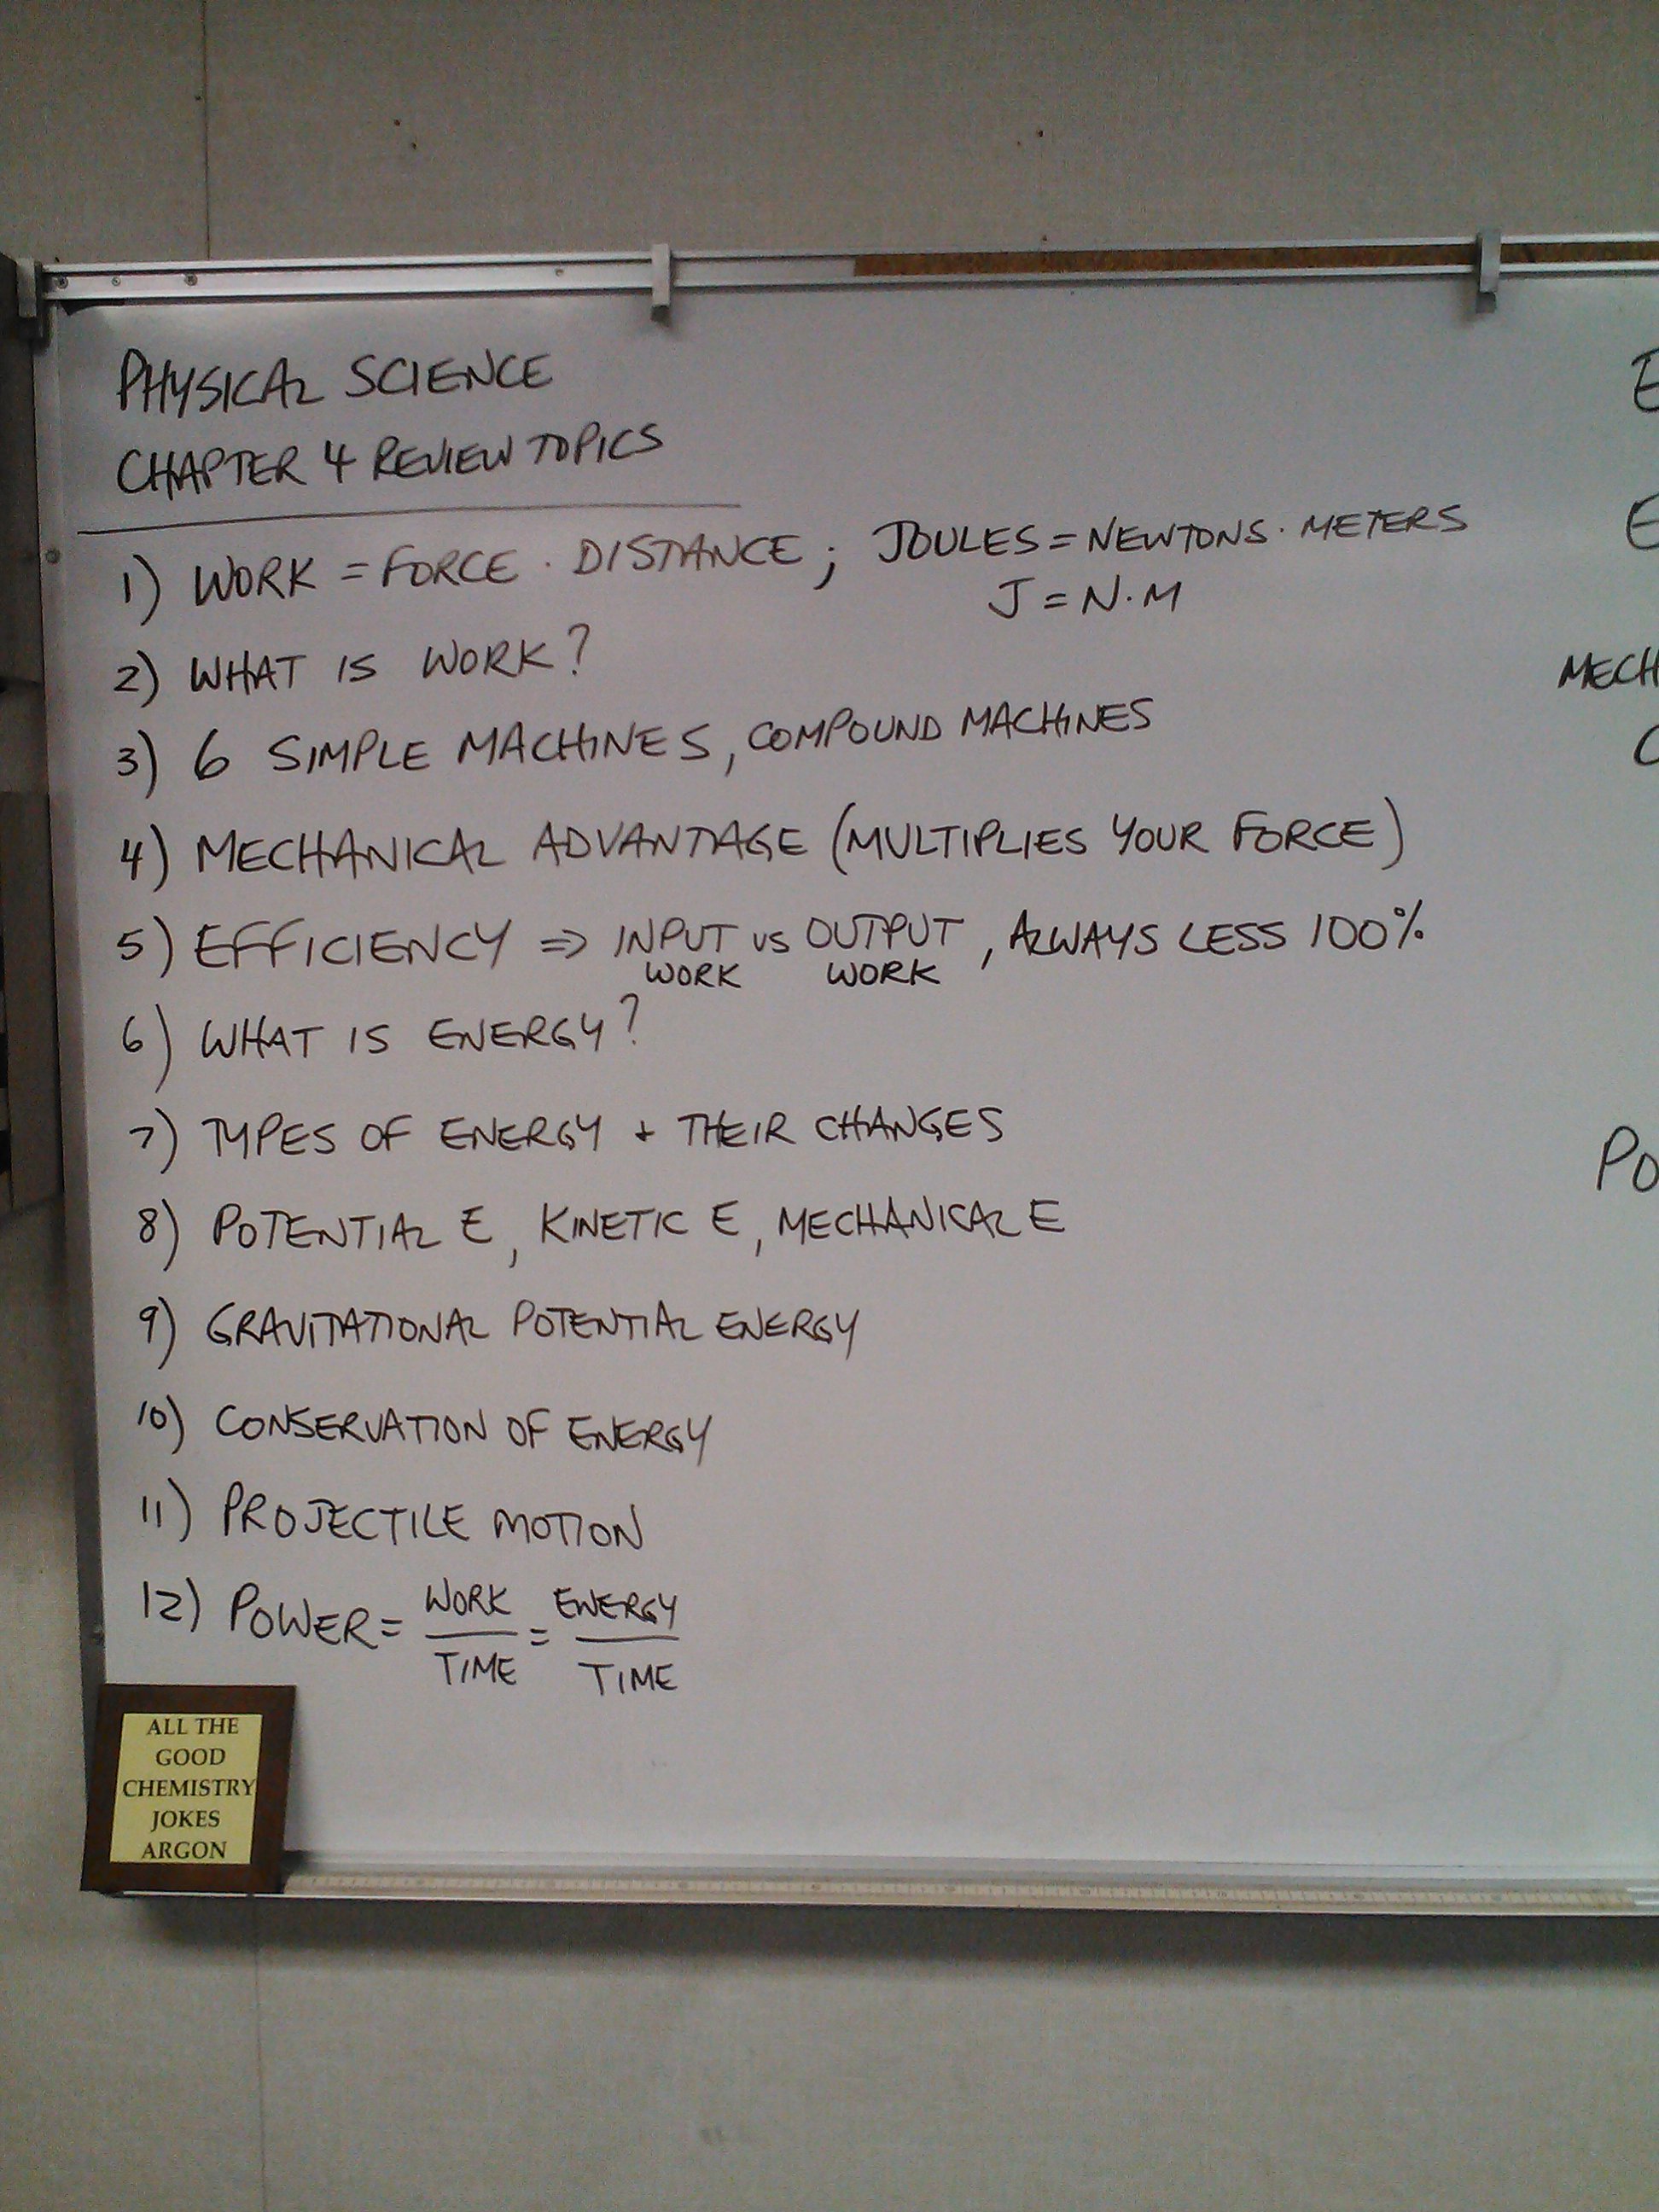 PHYSICAL SCIENCE
CHAPTER 4 REVIEW TOPICS
1) WORK = FORCE · DISTANCE; JOULES = NEWTONS · METERS
J = N·M
2) WHAT IS WORK?
3) 6 SIMPLE MACHINES, COMPOUND MACHINES
4) MECHANICAL ADVANTAGE (MULTIPLIES YOUR FORCE)
5) EFFICIENCY ⇒ INPUT VS OUTPUT, ALWAYS LESS 100%
WORK WORK
6) WHAT IS ENERGY?
7) TYPES OF ENERGY + THEIR CHANGES
8) POTENTIAL E, KINETIC E, MECHANICAL E
9) GRAVITATIONAL POTENTIAL ENERGY
10) CONSERVATION OF ENERGY
11) PROJECTILE MOTION
12) POWER = WORK = ENERGY
TIME TIME
ALL THE
GOOD
CHEMISTRY
JOKES
ARGON
E
E
MECH
PO